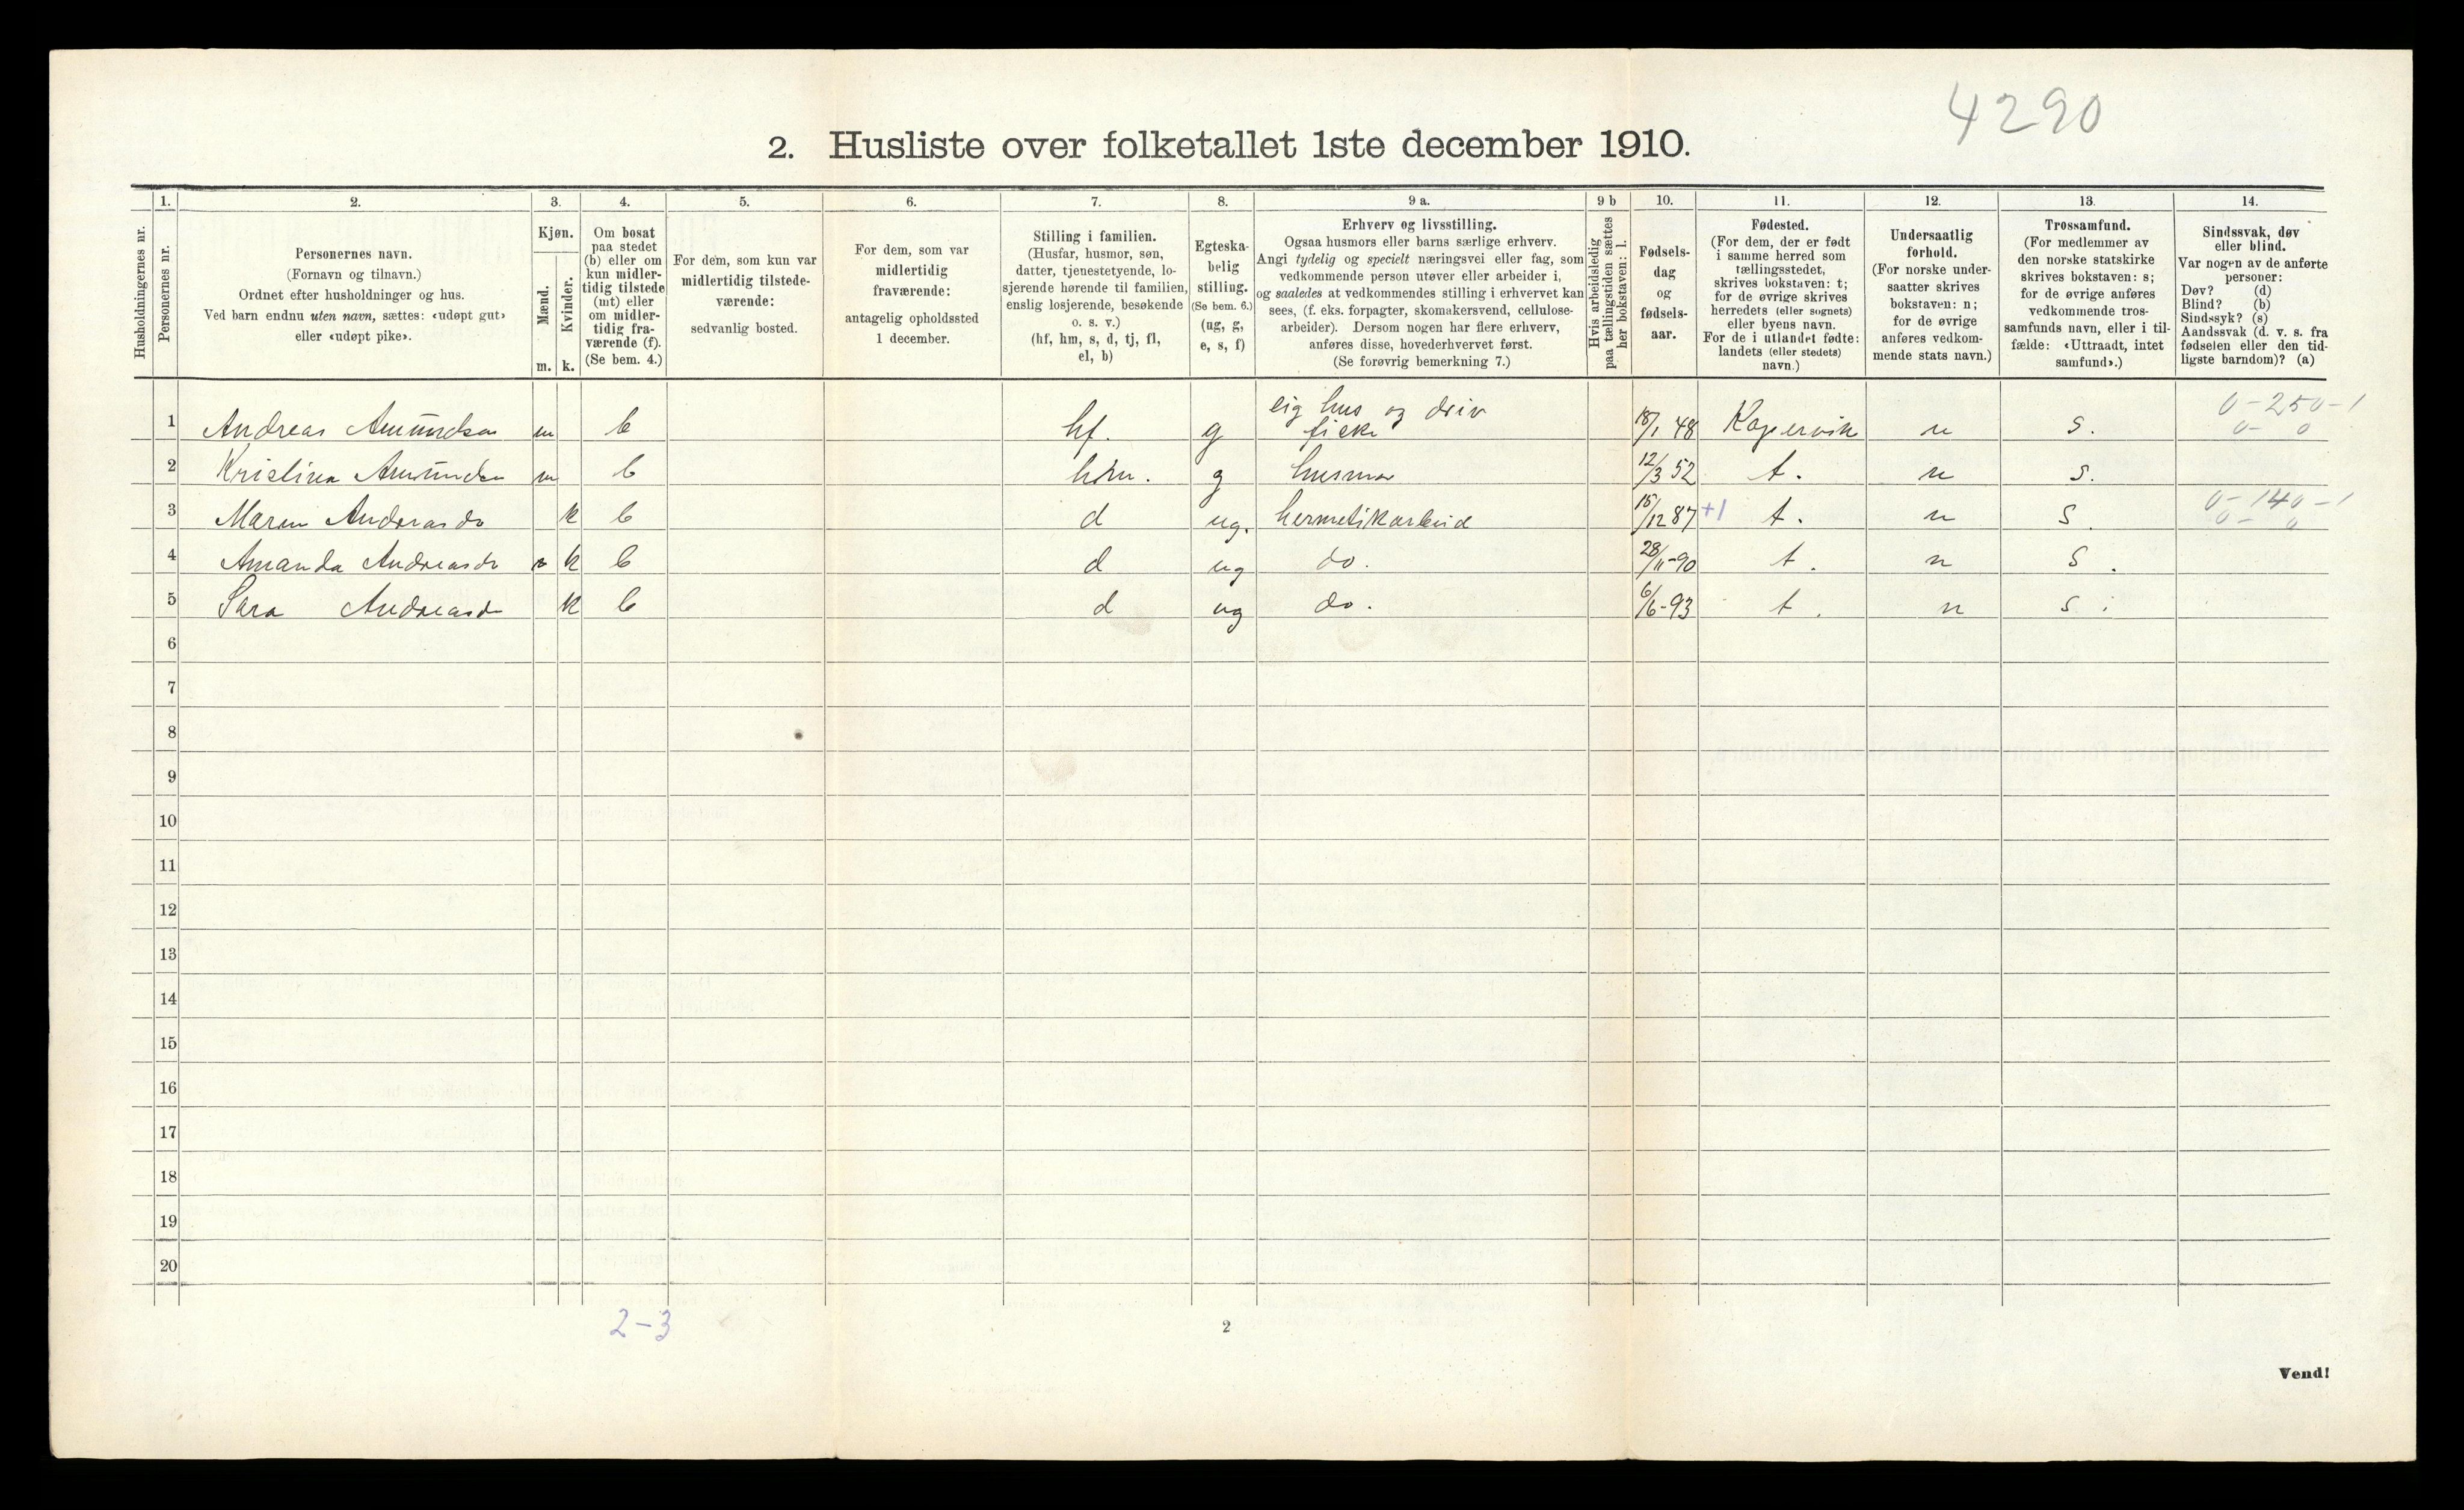 4290
2. Husliste over folketallet 1ste december 1910.
Husholdningernes nr.
1.
Personernes nr.
2.
Personernes navn.
(Fornavn og tilnavn.)
Ordnet efter husholdninger og hus.
Ved barn endnu uten navn, sættes: «udøpt gut»
eller «udøpt pike».
3.
Kjøn.
Mænd.
Kvinder.
m. k.
4.
Om bosat
paa stedet
(b) eller om
kun midler-
tidig tilstede
(mt) eller
om midler-
tidig fra-
værende (f).
(Se bem. 4.)
5.
For dem, som kun var
midlertidig tilstede-
værende:
sedvanlig bosted.
6.
For dem, som var
midlertidig
fraværende:
antagelig opholdssted
1 december.
7.
Stilling i familien.
(Husfar, husmor, søn,
datter, tjenestetyende, lo-
sjerende hørende til familien,
enslig losjerende, besøkende
o. s. v.)
(hf, hm, s, d, tj, fl,
el, b)
8.
Egteska-
belig
stilling.
(Se bem. 6.)
(ug, g,
e, s, f)
9 a.
Erhverv og livsstilling.
Ogsaa husmors eller barns særlige erhverv.
Angi tydelig og specielt næringsvei eller fag, som
vedkommende person utøver eller arbeider i,
og saaledes at vedkommendes stilling i erhvervet kan
sees, (f. eks. forpagter, skomakersvend, cellulose-
arbeider). Dersom nogen har flere erhverv,
anføres disse, hovederhvervet først.
(Se forøvrig bemerkning 7.)
9 b
Hvis arbeidsledig
paa tællingstiden sættes
her bokstaven: l.
10.
Fødsels-
dag
og
fødsels-
aar.
11.
Fødested.
(For dem, der er født
i samme herred som
tællingsstedet,
skrives bokstaven: t;
for de øvrige skrives
herredets (eller sognets)
eller byens navn.
For de i utlandet fødte:
landets (eller stedets)
navn.)
12.
Undersaatlig
forhold.
(For norske under-
saatter skrives
bokstaven: n;
for de øvrige
anføres vedkom-
mende stats navn.)
13.
Trossamfund.
(For medlemmer av
den norske statskirke
skrives bokstaven: s;
for de øvrige anføres
vedkommende tros-
samfunds navn, eller i til-
fælde: «Uttraadt, intet
samfund».)
14.
Sindssvak, døv
eller blind.
Var nogen av de anførte
personer:
Døv? (d)
Blind? (b)
Sindssyk? (s)
Aandssvak (d. v. s. fra
fødselen eller den tid-
ligste barndom)? (a)
eig hus og driv 0-250-1
1 Andreas Amundsen m b hf. g fiske 18/1 48 Kopervik n s. 0- 0
2 Kristina Amunds m b hm. g husmor 12/3 52 t. n s.
3 Maren Andreasd k b d ug. hermetikarbeid 15/12 87 +1 t. n s. 0-140-1
0- 0
4 Amanda Andreasd k b d ug do. 28/11-90 t. n s.
5 Sara Andreasd k b d ug do. 6/6-93 t. n s.
6
7
8
9
10
11
12
13
14
15
16
17
18
19
20
2-3
2
Vend!